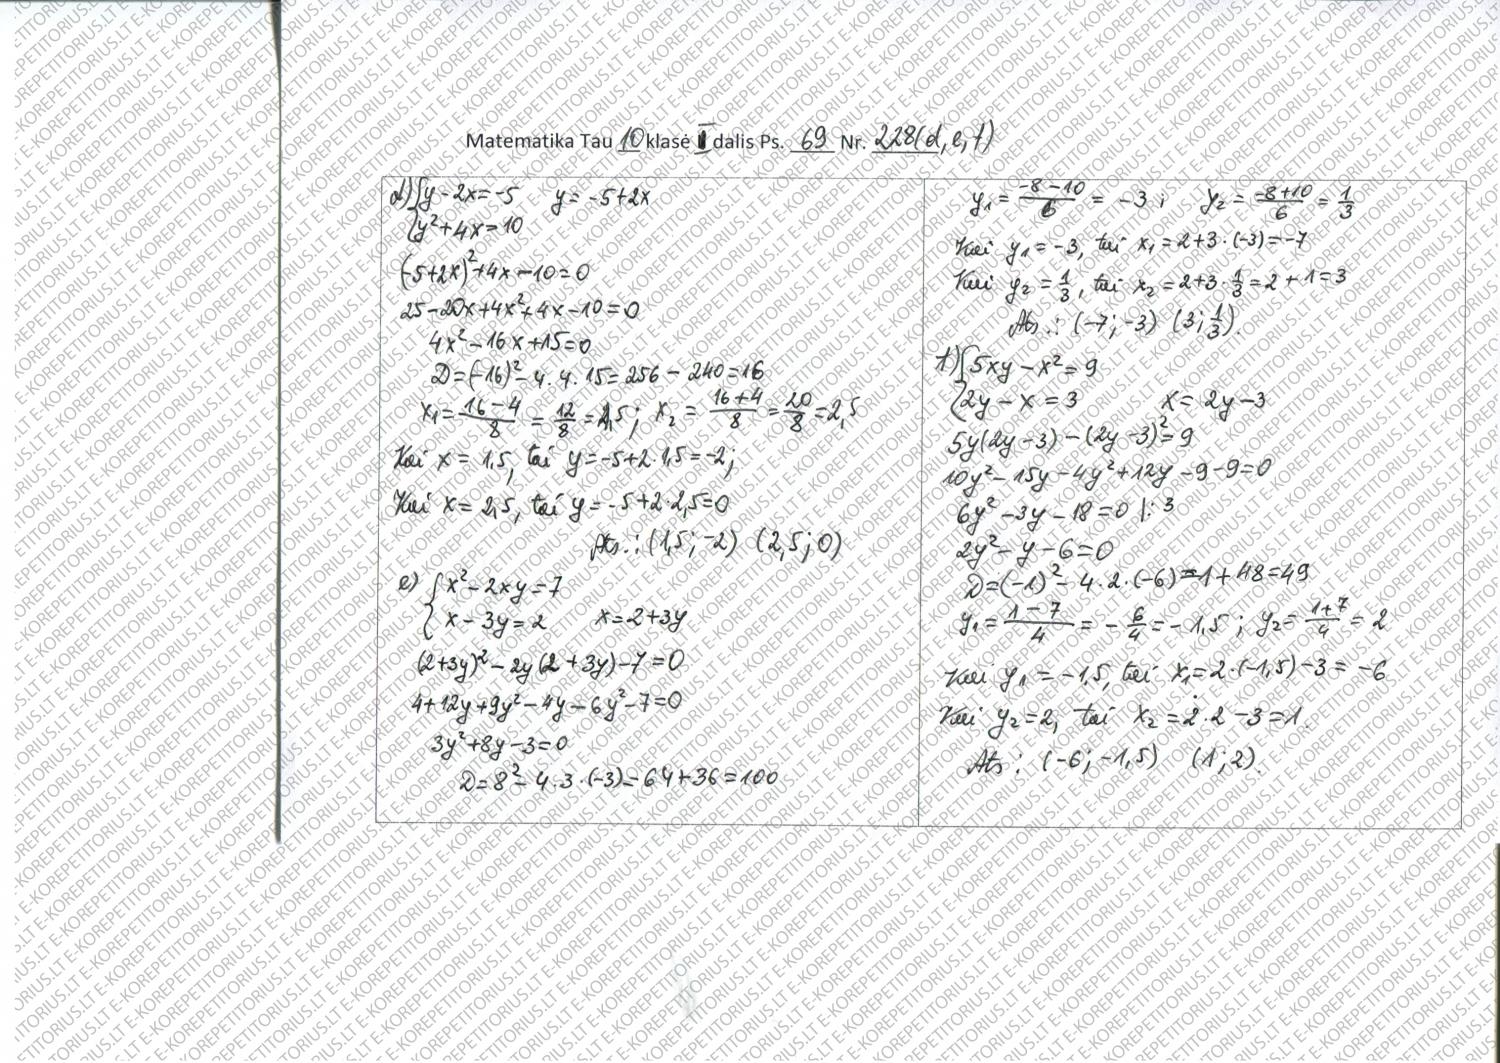 Matematika Tau 10 klasė I dalis Ps. 69 Nr. 228(d,e,f)
d) { y - 2x = -5 y = -5+2x
y² + 4x = 10
(-5+2x)² + 4x - 10 = 0
25 - 20x + 4x² + 4x - 10 = 0
4x² - 16x + 15 = 0
D = (-16)² - 4 · 4 · 15 = 256 - 240 = 16
x₁ = (16-4)/8 = 12/8 = 1,5 ; x₂ = (16+4)/8 = 20/8 = 2,5
Kai x = 1,5, tai y = -5+2·1,5 = -2;
Kai x = 2,5, tai y = -5+2·2,5 = 0
Ats.: (1,5; -2) (2,5; 0)
e) { x² - 2xy = 7
x - 3y = 2 x = 2+3y
(2+3y)² - 2y(2+3y) - 7 = 0
4 + 12y + 9y² - 4y - 6y² - 7 = 0
3y² + 8y - 3 = 0
D = 8² - 4·3·(-3) = 64 + 36 = 100
y₁ = (-8-10)/6 = -3 ; y₂ = (-8+10)/6 = 1/3
Kai y₁ = -3, tai x₁ = 2+3·(-3) = -7
Kai y₂ = 1/3, tai x₂ = 2+3·1/3 = 2+1 = 3
Ats.: (-7; -3) (3; 1/3).
f) { 5xy - x² = 9
2y - x = 3 x = 2y-3
5y(2y-3) - (2y-3)² = 9
10y² - 15y - 4y² + 12y - 9 - 9 = 0
6y² - 3y - 18 = 0 |: 3
2y² - y - 6 = 0
D = (-1)² - 4·2·(-6) = 1 + 48 = 49
y₁ = (1-7)/4 = -6/4 = -1,5 ; y₂ = (1+7)/4 = 2
Kai y₁ = -1,5, tai x₁ = 2·(-1,5) - 3 = -6
Kai y₂ = 2, tai x₂ = 2·2 - 3 = 1.
Ats: (-6; -1,5) (1; 2).
E-KOREPETITORIUS.LT